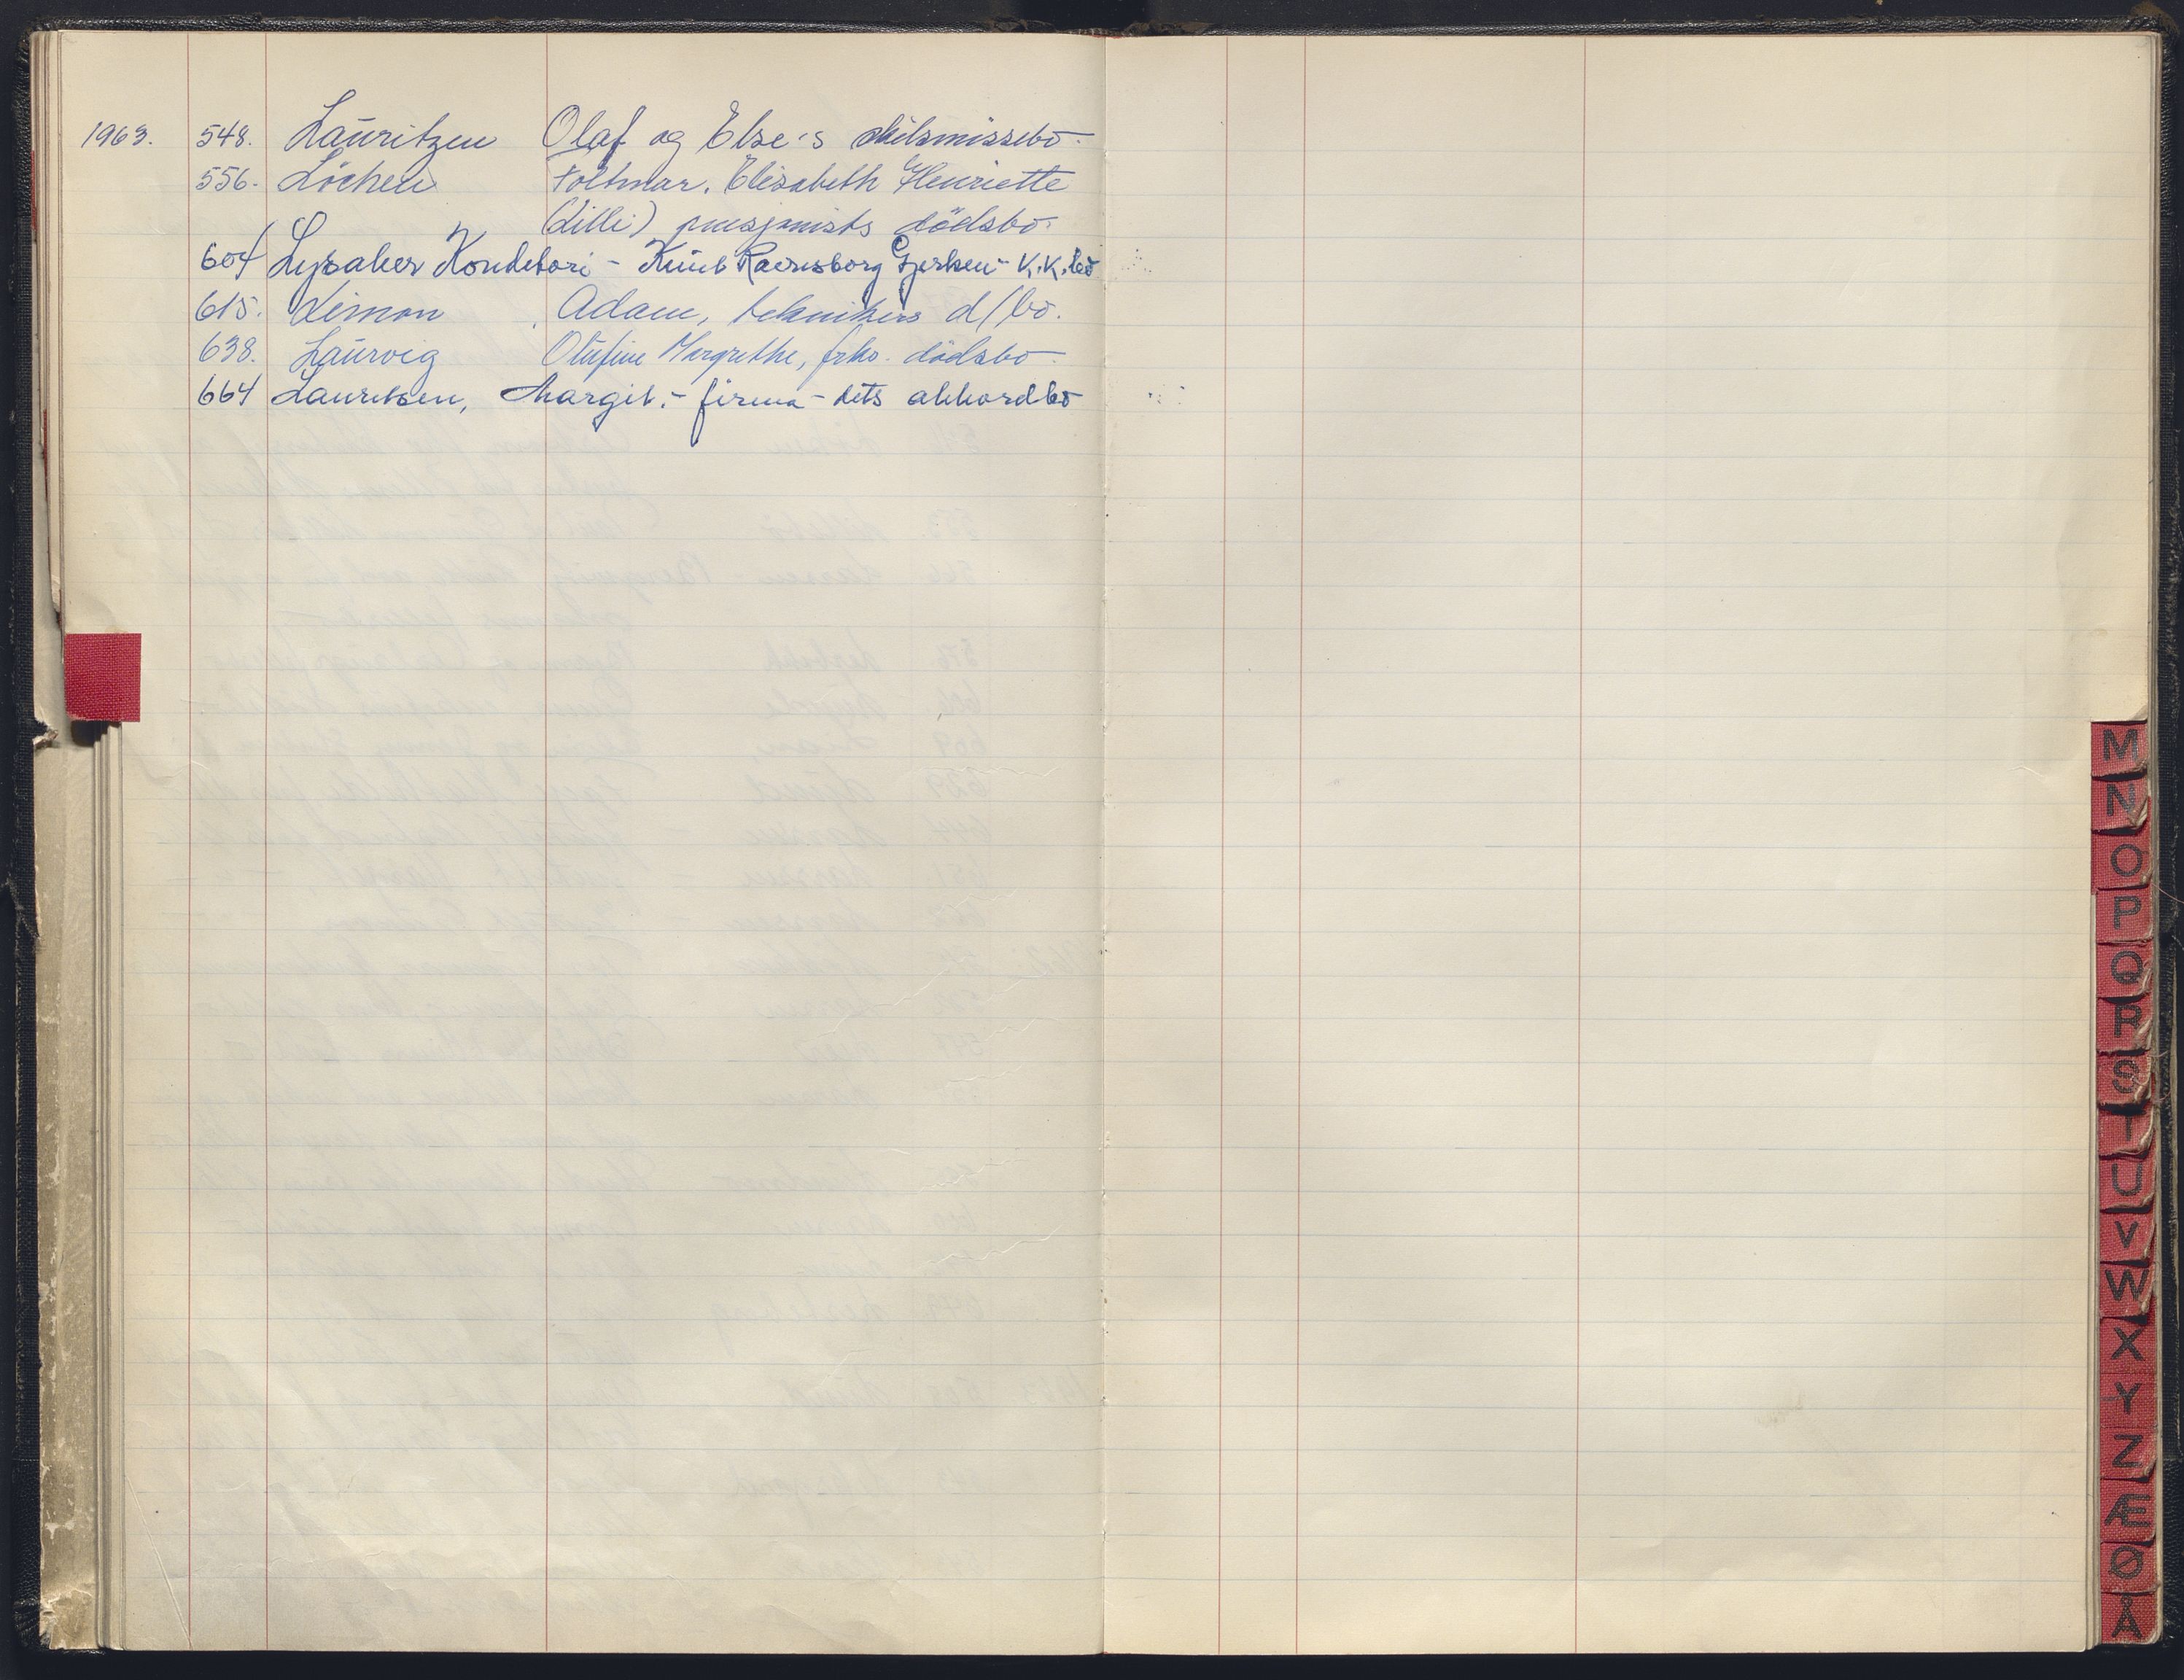 1963. 548. Lauritzen Olaf og Else's skilsmissebo.
556. Löchen Foltmar. Elisabeth Henriette
(Lilli) pensjonists dödsbo.
604 Lysaker Konditori - Knut Ravnsborg Gjertsen - K.K.bo
615. Limon Adam, teknikers d/bo.
638. Laurvig Olufine Margrethe, frks. dödsbo
664 Lauritsen, Margit. - firma - dets akkordbo
M
N
O
P
Q
R
S
T
U
V
W
X
Y
Z
Æ
Ø
Å